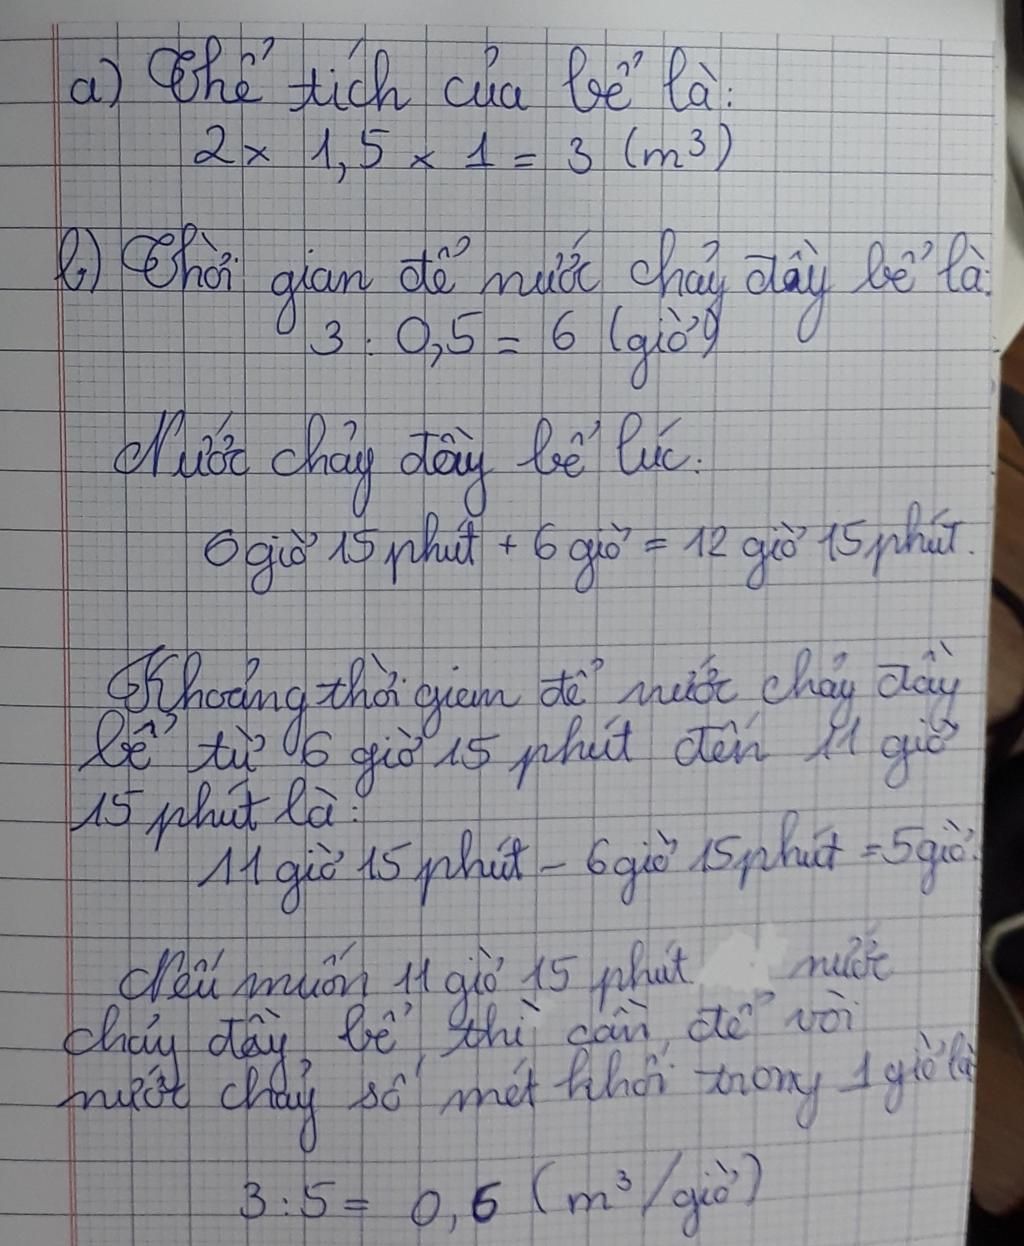 a) Thể tích của bể là:
2 x 1,5 x 1 = 3 (m³)
b) Thời gian để nước chảy đầy bể là:
3 : 0,5 = 6 (giờ)
Nước chảy đầy bể lúc:
6 giờ 15 phút + 6 giờ = 12 giờ 15 phút.
Khoảng thời gian để nước chảy đầy
bể từ 6 giờ 15 phút đến 11 giờ
15 phút là:
11 giờ 15 phút - 6 giờ 15 phút = 5 giờ.
Nếu muốn 11 giờ 15 phút nước
chảy đầy bể thì cần để vòi
nước chảy số mét khối trong 1 giờ là
3 : 5 = 0,6 (m³/giờ)